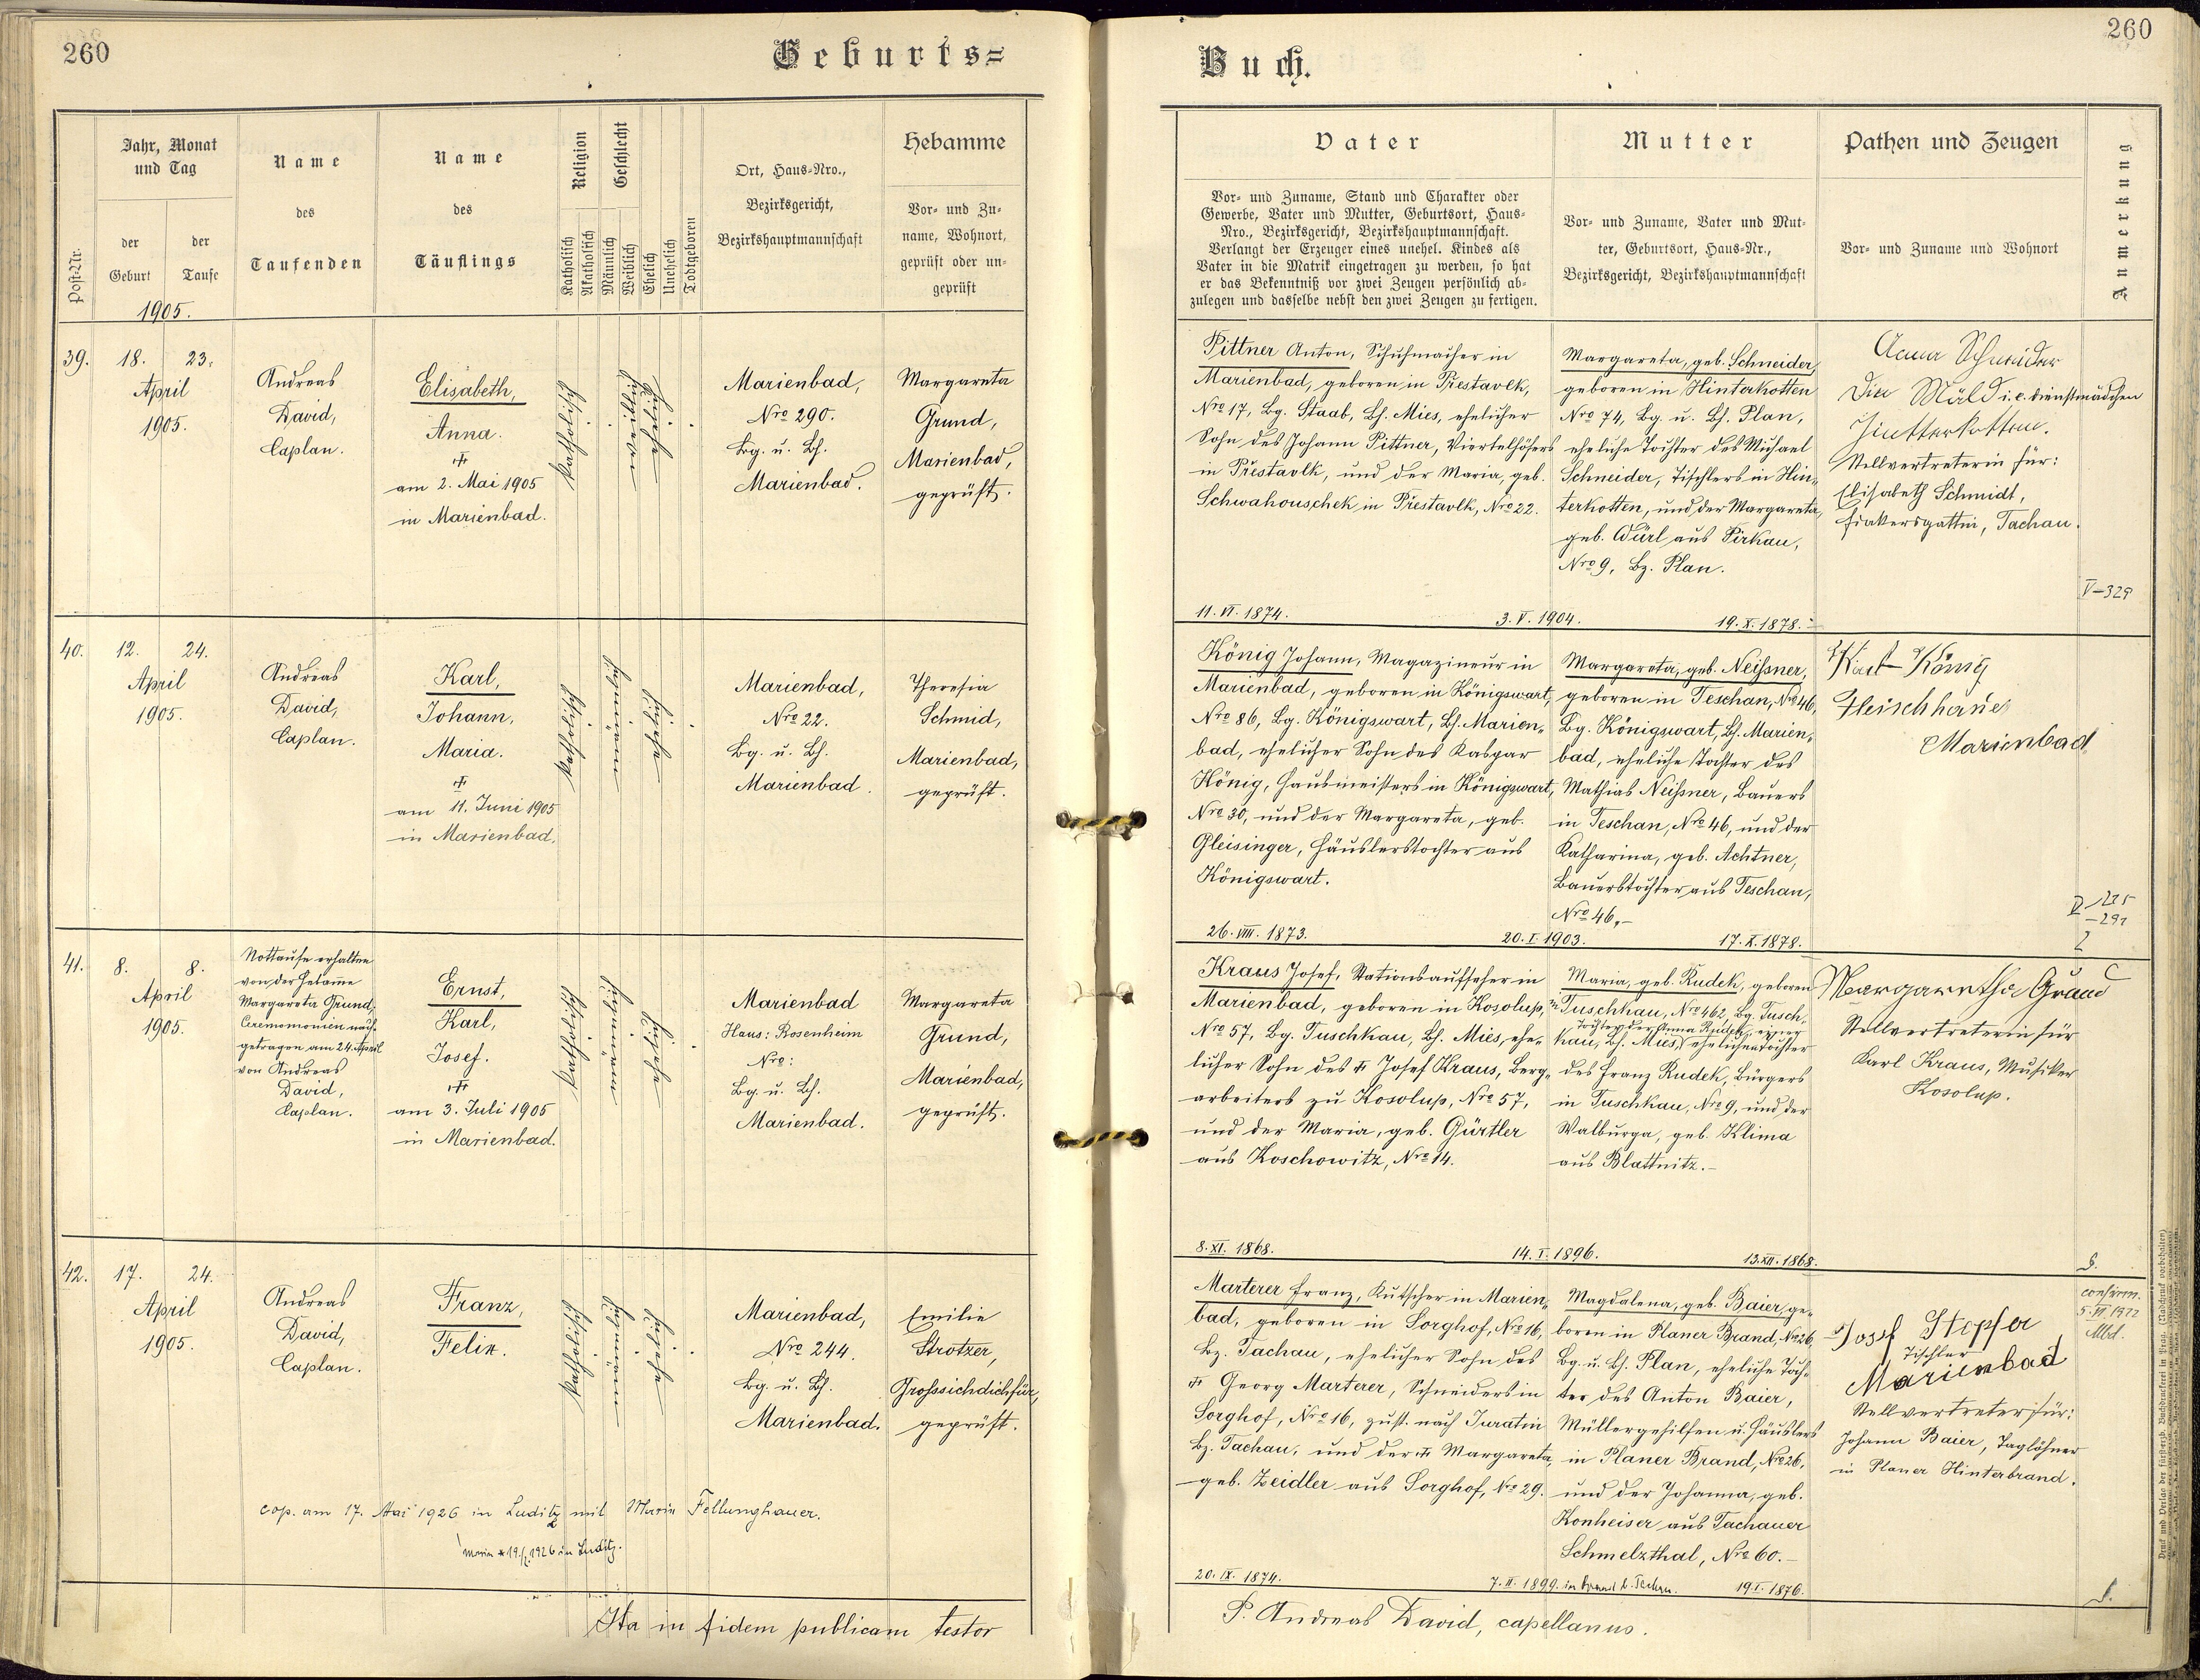 260
Geburts=
Jahr, Monat
und Tag
Name
Name
Religion
Geschlecht
Ort, Haus-Nro.,
Hebamme
des
des
Bezirksgericht,
Vor- und Zu-
der
der
Bezirkshauptmannschaft
name, Wohnort,
Post-Nr.
Geburt
Taufe
Taufenden
Täuflings
Katholisch
Akatholisch
Männlich
Weiblich
Ehelich
Unehelich
Todtgeboren
geprüft oder un-
geprüft
1905.
39.
18.
23.
April
1905.
Andreas
David,
Caplan.
Elisabeth,
Anna.
am 2. Mai 1905
in Marienbad.
Katholisch
Marienbad,
Nro 290.
Bg. u. Bh.
Marienbad.
Margareta
Grund,
Marienbad,
geprüft.
40.
12.
24.
April
1905.
Andreas
David,
Caplan.
Karl,
Johann,
Maria.
am 11. Juni 1905
in Marienbad.
Katholisch
Marienbad,
Nro 22.
Bg. u. Bh.
Marienbad.
Theresia
Schmid,
Marienbad,
geprüft.
41.
8.
8.
April
1905.
Nottaufe erhalten
von der Hebamme
Margareta Grund,
Ceremomonien nach-
getragen am 24. April
von Andreas
David,
Caplan.
Ernst,
Karl,
Josef.
am 3. Juli 1905
in Marienbad.
Katholisch
Marienbad
Haus: Rosenheim
Nro:
Bg. u. Bh.
Marienbad.
Margareta
Grund,
Marienbad,
geprüft.
42.
17.
24.
April
1905.
Andreas
David,
Caplan.
Franz,
Felix.
Katholisch
Marienbad,
Nro 244.
Bg. u. Bh.
Marienbad.
Emilie
Strotzer,
Grosssichdichfür,
geprüft.
cop. am 17. Mai 1926 in Luditz mit Marie Fellunghauer.
in Luditz.
Ita in fidem publicam testor
260
Buch.
Vater
Mutter
Pathen und Zeugen
Anmerkung
Vor- und Zuname, Stand und Charakter oder
Gewerbe, Vater und Mutter, Geburtsort, Haus-
Nro., Bezirksgericht, Bezirkshauptmannschaft.
Verlangt der Erzeuger eines unehel. Kindes als
Vater in die Matrik eingetragen zu werden, so hat
er das Bekenntniß vor zwei Zeugen persönlich ab-
zulegen und dasselbe nebst den zwei Zeugen zu fertigen.
Vor- und Zuname, Vater und Mut-
ter, Geburtsort, Haus-Nr.,
Bezirksgericht, Bezirkshauptmannschaft
Vor- und Zuname und Wohnort
Pittner Anton, Schuhmacher in
Marienbad, geboren in Přestavlk,
Nro 17, Bg. Staab, Bh. Mies, ehelicher
Sohn des Johann Pittner, Viertelhöfers
in Přestavlk, und der Maria, geb.
Schwahouschek in Přestavlk, Nro 22.
11. VI. 1874.
3. V. 1904.
Margareta, geb. Schneider,
geboren in Hinterkotten
Nro 74, Bg. u. Bh. Plan,
eheliche Tochter des Michael
Schneider, Tischlers in Hin-
terkotten, und der Margareta,
geb. Würl aus Pirkau,
Nro 9, Bz. Plan.
19. X. 1878.
Anna Schneider
i. e. Dienstmädchen
Hinterkotten.
Stellvertreterin für:
Elisabeth Schmidt,
Fiakersgattin, Tachau.
König Johann, Magazineur in
Marienbad, geboren in Königswart,
Nro 86, Bg. Königswart, Bh. Marien-
bad, ehelicher Sohn des Kaspar
König, Hausmeisters in Königswart,
Nro 30, und der Margareta, geb.
Gleisinger, Häuslerstochter aus
Königswart.
26. VIII. 1873.
20. I. 1903.
Margareta, geb. Neißner,
geboren in Teschau, Nro 46,
Bg. Königswart, Bh. Marien-
bad, eheliche Tochter des
Mathias Neißner, Bauers
in Teschau, Nro 46, und der
Katharina, geb. Achtner,
Bauerstochter aus Teschau,
Nro 46.
17. X. 1878.
Karl König
Fleischhauer
Marienbad
Kraus Josef, Stationsaufseher in
Marienbad, geboren in Kosolup,
Nro 57, Bg. Tuschkau, Bh. Mies, ehe-
licher Sohn des Josef Kraus, Berg-
arbeiters zu Kosolup, Nro 57,
und der Maria, geb. Gürtler
aus Koschowitz, Nro 14.
8. XI. 1868.
14. I. 1896.
Maria, geb. Rudek, geboren
in Tuschkau, Nro 462, Bg. Tusch-
Tochter der Anna Rudek, einer
kau, Bh. Mies, ehelichen Tochter
des Franz Rudek, Bürgers
in Tuschkau, Nro 9, und der
Walburga, geb. Klima
aus Blattnitz.
13. XII. 1868.
Margaretha Grund
Stellvertreterin für
Karl Kraus, Musiker
Kosolup.
Marterer Franz, Kutscher in Marien-
bad, geboren in Sorghof, Nro 16,
Bz. Tachau, ehelicher Sohn des
Georg Marterer, Schneiders in
Sorghof, Nro 16, zust. nach Juratin
Bz. Tachau, und der Margareta,
geb. Zeidler aus Sorghof, Nro 29.
20. IX. 1874.
7. II. 1899.
Magdalena, geb. Baier, ge-
boren in Planer Brand, Nro 26,
Bg. u. Bh. Plan, eheliche Toch-
ter des Anton Baier,
Müllergehilfen u. Häuslers
in Planer Brand, Nro 26,
und der Johanna, geb.
Konheiser aus Tachauer
Schmelzthal, Nro 60.
19. I. 1876.
Josef Hopfer
Tischler
Marienbad
Stellvertreter für:
Johann Baier, Taglöhner
in Planer Hinterbrand.
confirm.
Mbd.
P. Andreas David, capellanus.